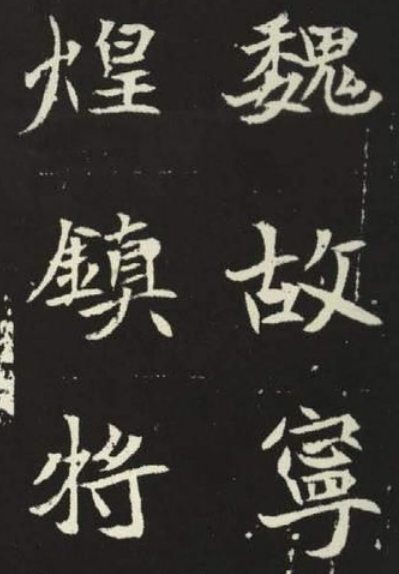 魏故寧
煌鎮將